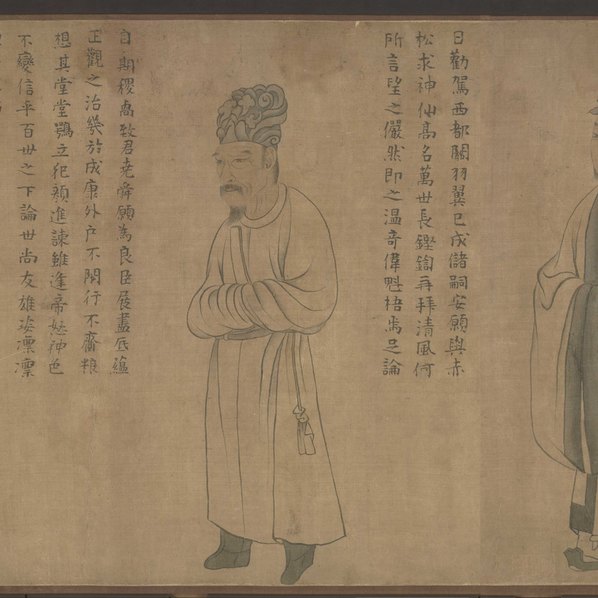 日勸駕西都關羽翼已成儲嗣安願與赤
松求神仙高名萬世長鏗鍧再拜清風何
所言望之儼然即之溫奇偉魁梧焉足論
自期稷卨致君堯舜願為良臣展盡底蘊
正觀之治幾於成康外戶不閇行不齎糧
想其堂堂鶚立犯顏進諫雖逢帝怒神色
不變信乎百世之下論世尚友雄姿凛凛